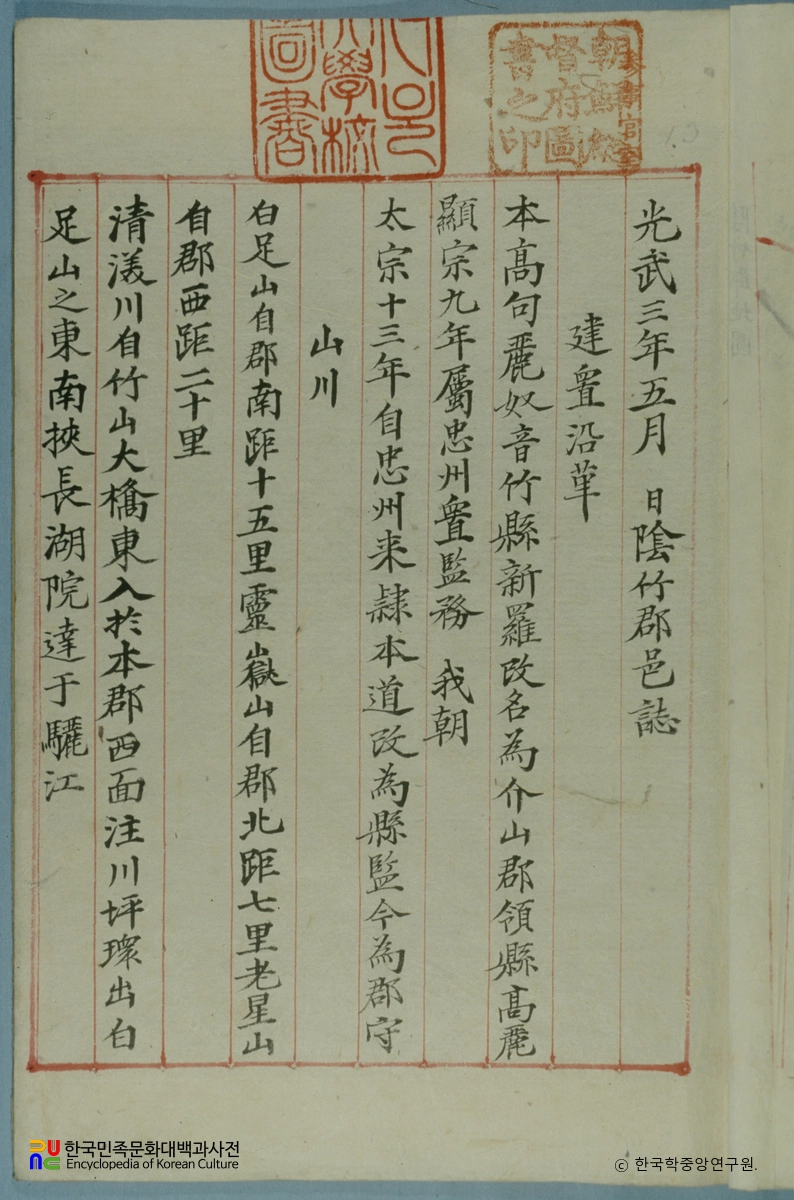 光武三年五月 日陰竹郡邑誌
建置沿革
本高句麗奴音竹縣新羅改名為介山郡領縣高麗
顯宗九年屬忠州置監務 我朝
太宗十三年自忠州来隷本道改為縣監今為郡守
山川
白足山自郡南距十五里靈嶽山自郡北距七里老星山
自郡西距二十里
清渼川自竹山大橋東入於本郡西面注川坪環出白
足山之東南挾長湖院達于驪江
朝鮮總
督府圖
書之印
參事官室
大學校
圖書
한국민족문화대백과사전
Encyclopedia of Korean Culture
ⓒ 한국학중앙연구원.